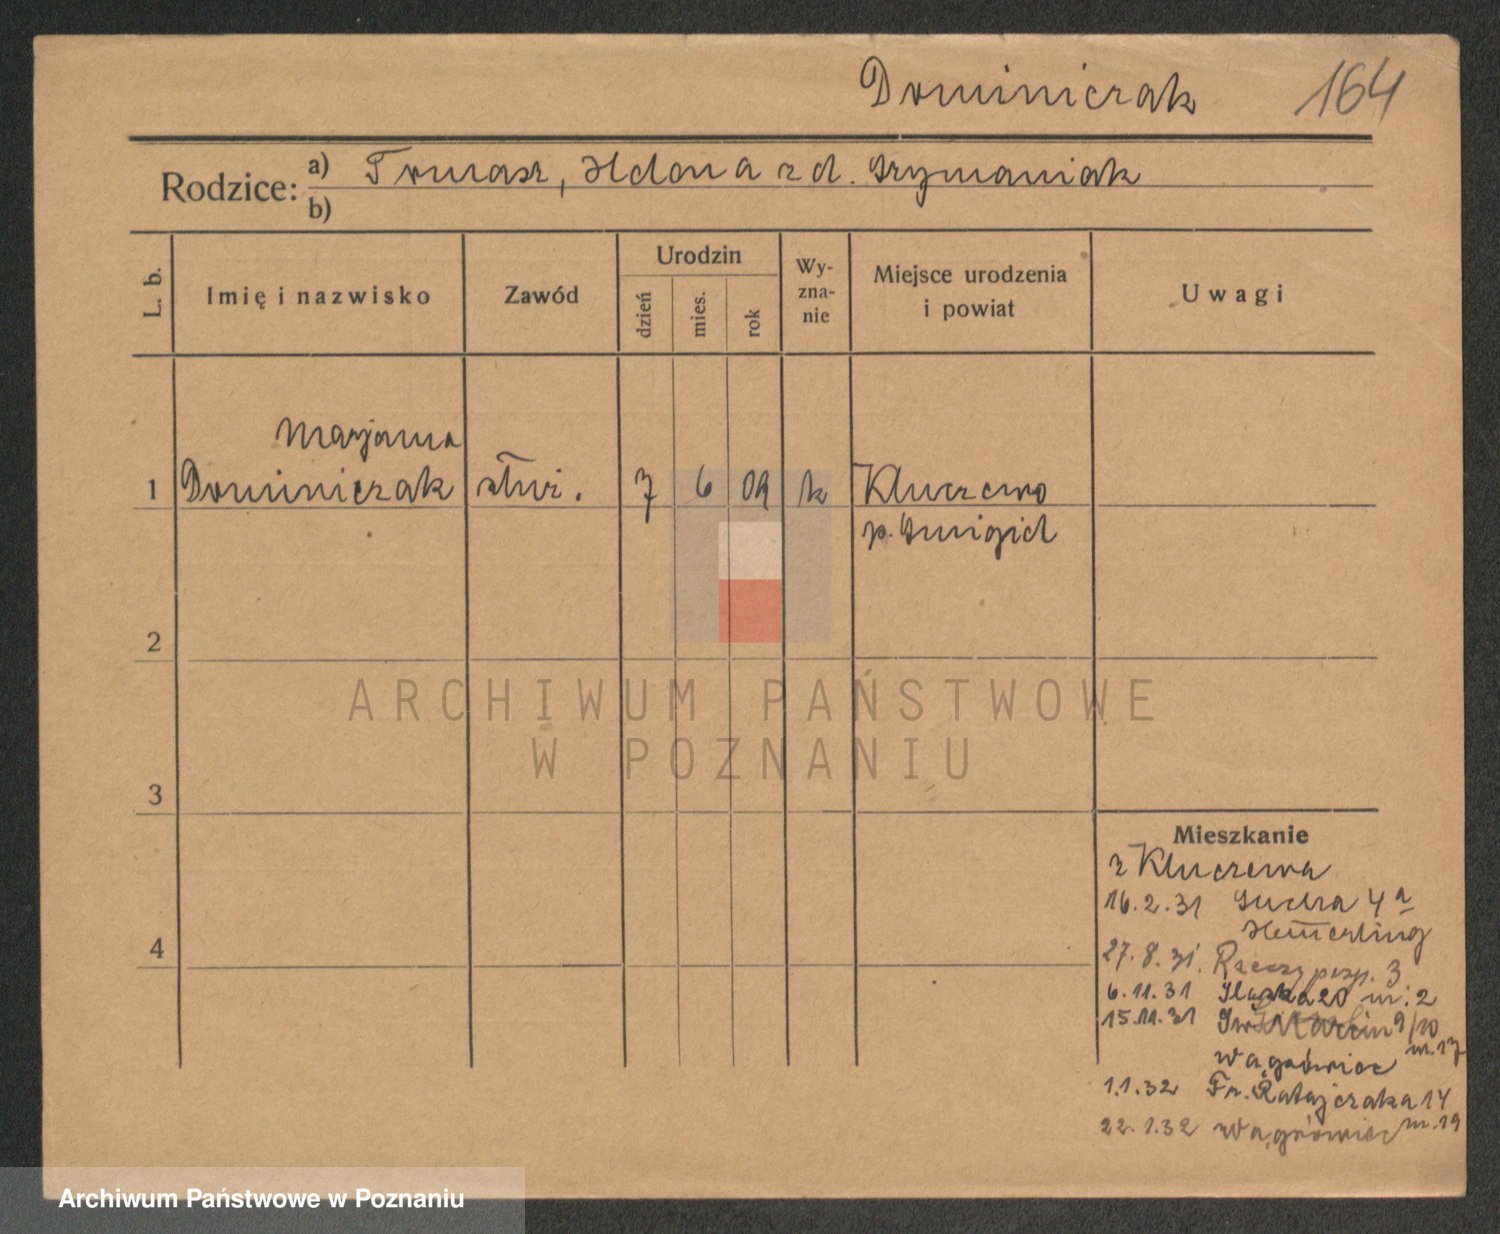 Dominiczak 164
Rodzice: a) Tomasz, Helena z d. Szymaniak
b)
L. b. Imię i nazwisko Zawód Urodzin dzień mies. rok Wyznanie Miejsce urodzenia i powiat Uwagi
Marjanna
1 Dominiczak służ. 7 6 09 k Kluczewo
p. Śmigiel
2
3
4
Mieszkanie
z Kluczewa
16.2.31 Sucha 4a
Hemerling
27.8.31. Rzeczyposp. 3
6.11.31 Śląska 20 m. 2
15.11.31 Św. Marcin 9/10
m. 17
Wągrówiec
1.1.32 Fr. Ratajczaka 14
m. 19
22.1.32 Wągrówiec
ARCHIWUM PAŃSTWOWE
W POZNANIU
Archiwum Państwowe w Poznaniu